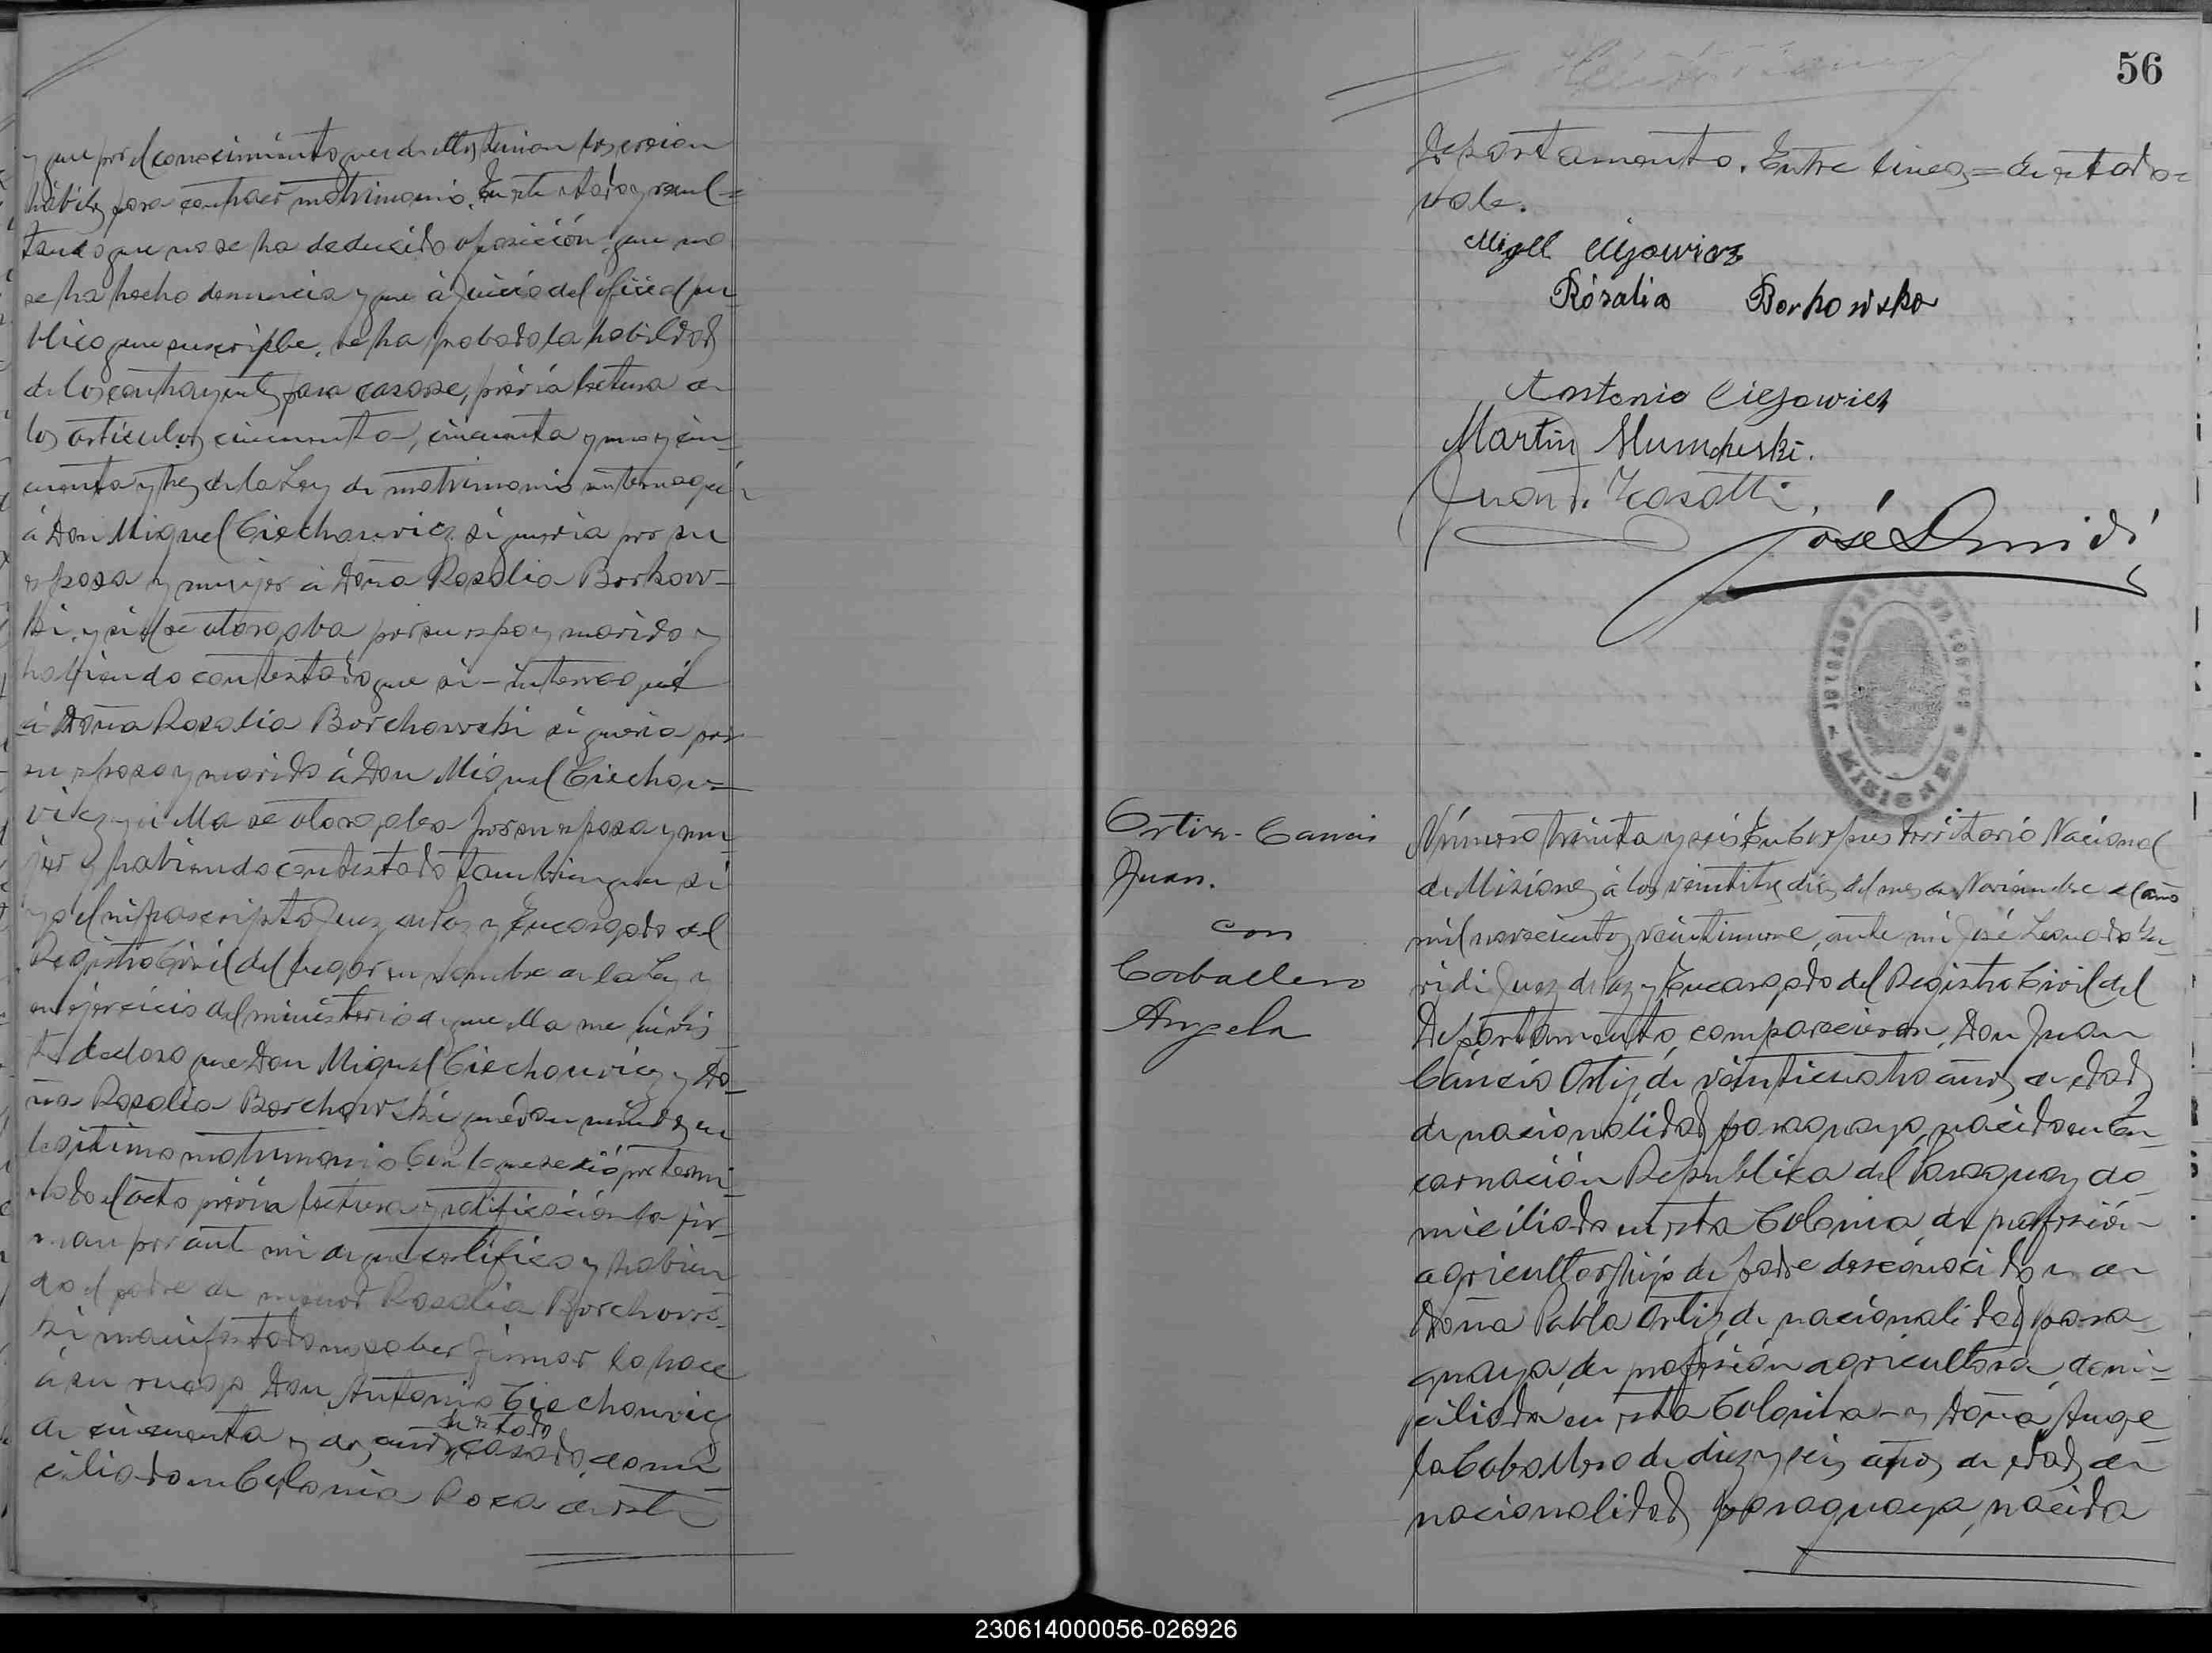 y que por el conocimiento que de ellos tenian los creian
habiles para contraer matrimonio. En este estado y resul=
tando que no se ha deducido oposición, que no
se ha hecho denuncia y que á juicio del oficial pu-
blico que suscribe, se ha probado la habilidad
de los contrayentes para casarse, prévia lectura de
los artículos cincuenta, cincuenta y uno y cin-
cuenta y tres de la Ley de matrimonio interrogué
á Don Miguel Ciechanvicz si queria por su
esposa y mujer á Doña Rosalia Borkow-
ski, y si el se otorgaba por su espo y marido y
habiendo contestado que si - interrogué
á Doña Rosalia Borchowski si queria por
su esposo y marido á Don Miguel Ciechon=
vicz y si ella se otorgaba por su esposa y mu-
jer y habiendo contestado tambien que si
yo el infrascripto Juez de Paz y Encargado del
Registro Civil del lugar en nombre de la Ley y
en ejercicio del ministerio de que ella me invis
te declaro que Don Miguel Ciechonvicz y Do-
ña Rosalia Borchowski quedan unidos en
legitimo matrimonio. Con lo que se dió por termi-
nado el acto prévia lectura y ratificación la fir-
man por ante mi de que certifico y habien
do el padre de menor Rosalia Borchows-
ki manifestado no saber firmar lo hace
á su ruego Don Antonio Ciechonvicz
de estado
de cincuenta y dos años, casado, domi-
ciliado en Colonia Roca de este
56
Departamento. Entre lineas = de estado =
vale.
Migell Ciejowicz
Rósalia Borkowska
Antonio Ciejowicz
Martin
Juan
José
MISIONES
Ortiz - Cancio
Juan.
con
Caballero
Angela
Número treinta y seis En Corpus Territorio Nacional
de Misiones á los veintitres dias del mes de Noviembre del año
mil novecientos veintinueve, ante mi José Leonardo
Juez de Paz y Encargado del Registro Civil del
Departamento, comparecieron, Don Juan
Cancio Ortiz, de veinticuatro años de edad,
de nacionalidad paraguayo, nacido en En-
carnación República del Paraguay do-
miciliado en esta Colonia, de profesión
agricultor, hijo de padre desconocido y de
Doña Pabla Ortiz, de nacionalidad para-
guaya, de profesión agricultora, domi=
ciliada en esta Colonia - y Doña Ange-
la Caballero de diez y seis años de edad, de
nacionalidad paraguaya, nacida
230614000056-026926